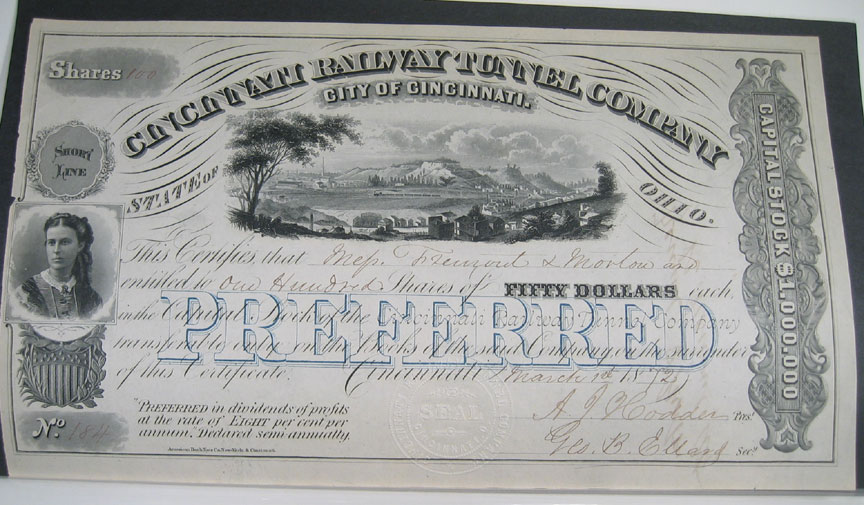 Shares 100
CINCINNATI RAILWAY TUNNEL COMPANY
CITY OF CINCINNATI.
SHORT
LINE
STATE OF OHIO.
CAPITAL STOCK $1,000,000
This Certifies that Mess. Fremont & Morton are
entitled to One Hundred Shares of FIFTY DOLLARS each,
in the Capital Stock of the Cincinnati Railway Tunnel Company
transferable only on the Books of the said Company, on the surrender
of this Certificate. Cincinnati March 1st 1872
PREFERRED
"PREFERRED in dividends of profits
at the rate of EIGHT per cent per
annum." Declared semi-annually.
SEAL
A J Hodder Prest.
Geo. B. Ellard Secy.
No. 184
American Bank Note Co. New York & Cincinnati.